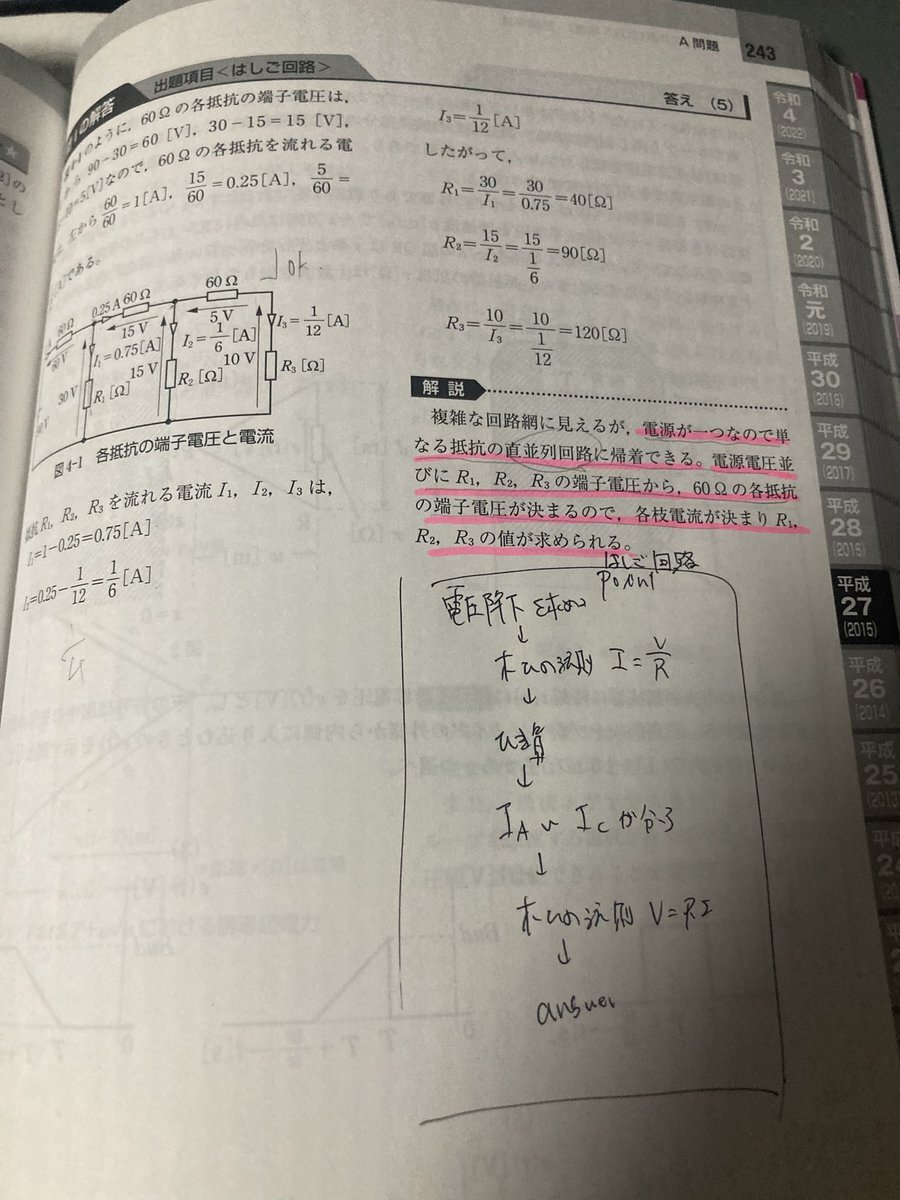 A 問題
243
の解答
出題項目<はしご回路>
答え (5)
のように，60 Ωの各抵抗の端子電圧は，
90－30＝60 [V]，30－15＝15 [V]，
＝5[V]なので，60 Ωの各抵抗を流れる電
左から 60/60＝1[A]，15/60＝0.25[A]，5/60＝
[A]である。
ok
60 Ω
0.25 A 60 Ω
60 Ω
60 V
15 V
5 V
I₁＝0.75[A]
I₂＝1/6[A]
I₃＝1/12[A]
30 V
R₁ [Ω]
15 V
R₂ [Ω]
10 V
R₃ [Ω]
図4-1 各抵抗の端子電圧と電流
抵抗 R₁，R₂，R₃ を流れる電流 I₁，I₂，I₃ は，
I₁＝1－0.25＝0.75[A]
I₂＝0.25－1/12＝1/6[A]
I₃＝1/12[A]
したがって，
R₁＝30/I₁＝30/0.75＝40[Ω]
R₂＝15/I₂＝15/(1/6)＝90[Ω]
R₃＝10/I₃＝10/(1/12)＝120[Ω]
解説
複雑な回路網に見えるが，電源が一つなので単
なる抵抗の直並列回路に帰着できる。電源電圧並
びに R₁，R₂，R₃ の端子電圧から，60 Ωの各抵抗
の端子電圧が決まるので，各枝電流が決まり R₁，
R₂，R₃ の値が求められる。
はしご回路
point
電圧降下 求め
↓
オームの法則 I＝V/R
↓
ひき算
↓
I_A や I_C が分かる
↓
オームの法則 V＝RI
↓
answer
令和
4
(2022)
令和
3
(2021)
令和
2
(2020)
令和
元
(2019)
平成
30
(2018)
平成
29
(2017)
平成
28
(2016)
平成
27
(2015)
平成
26
(2014)
平成
25
(2013)
平成